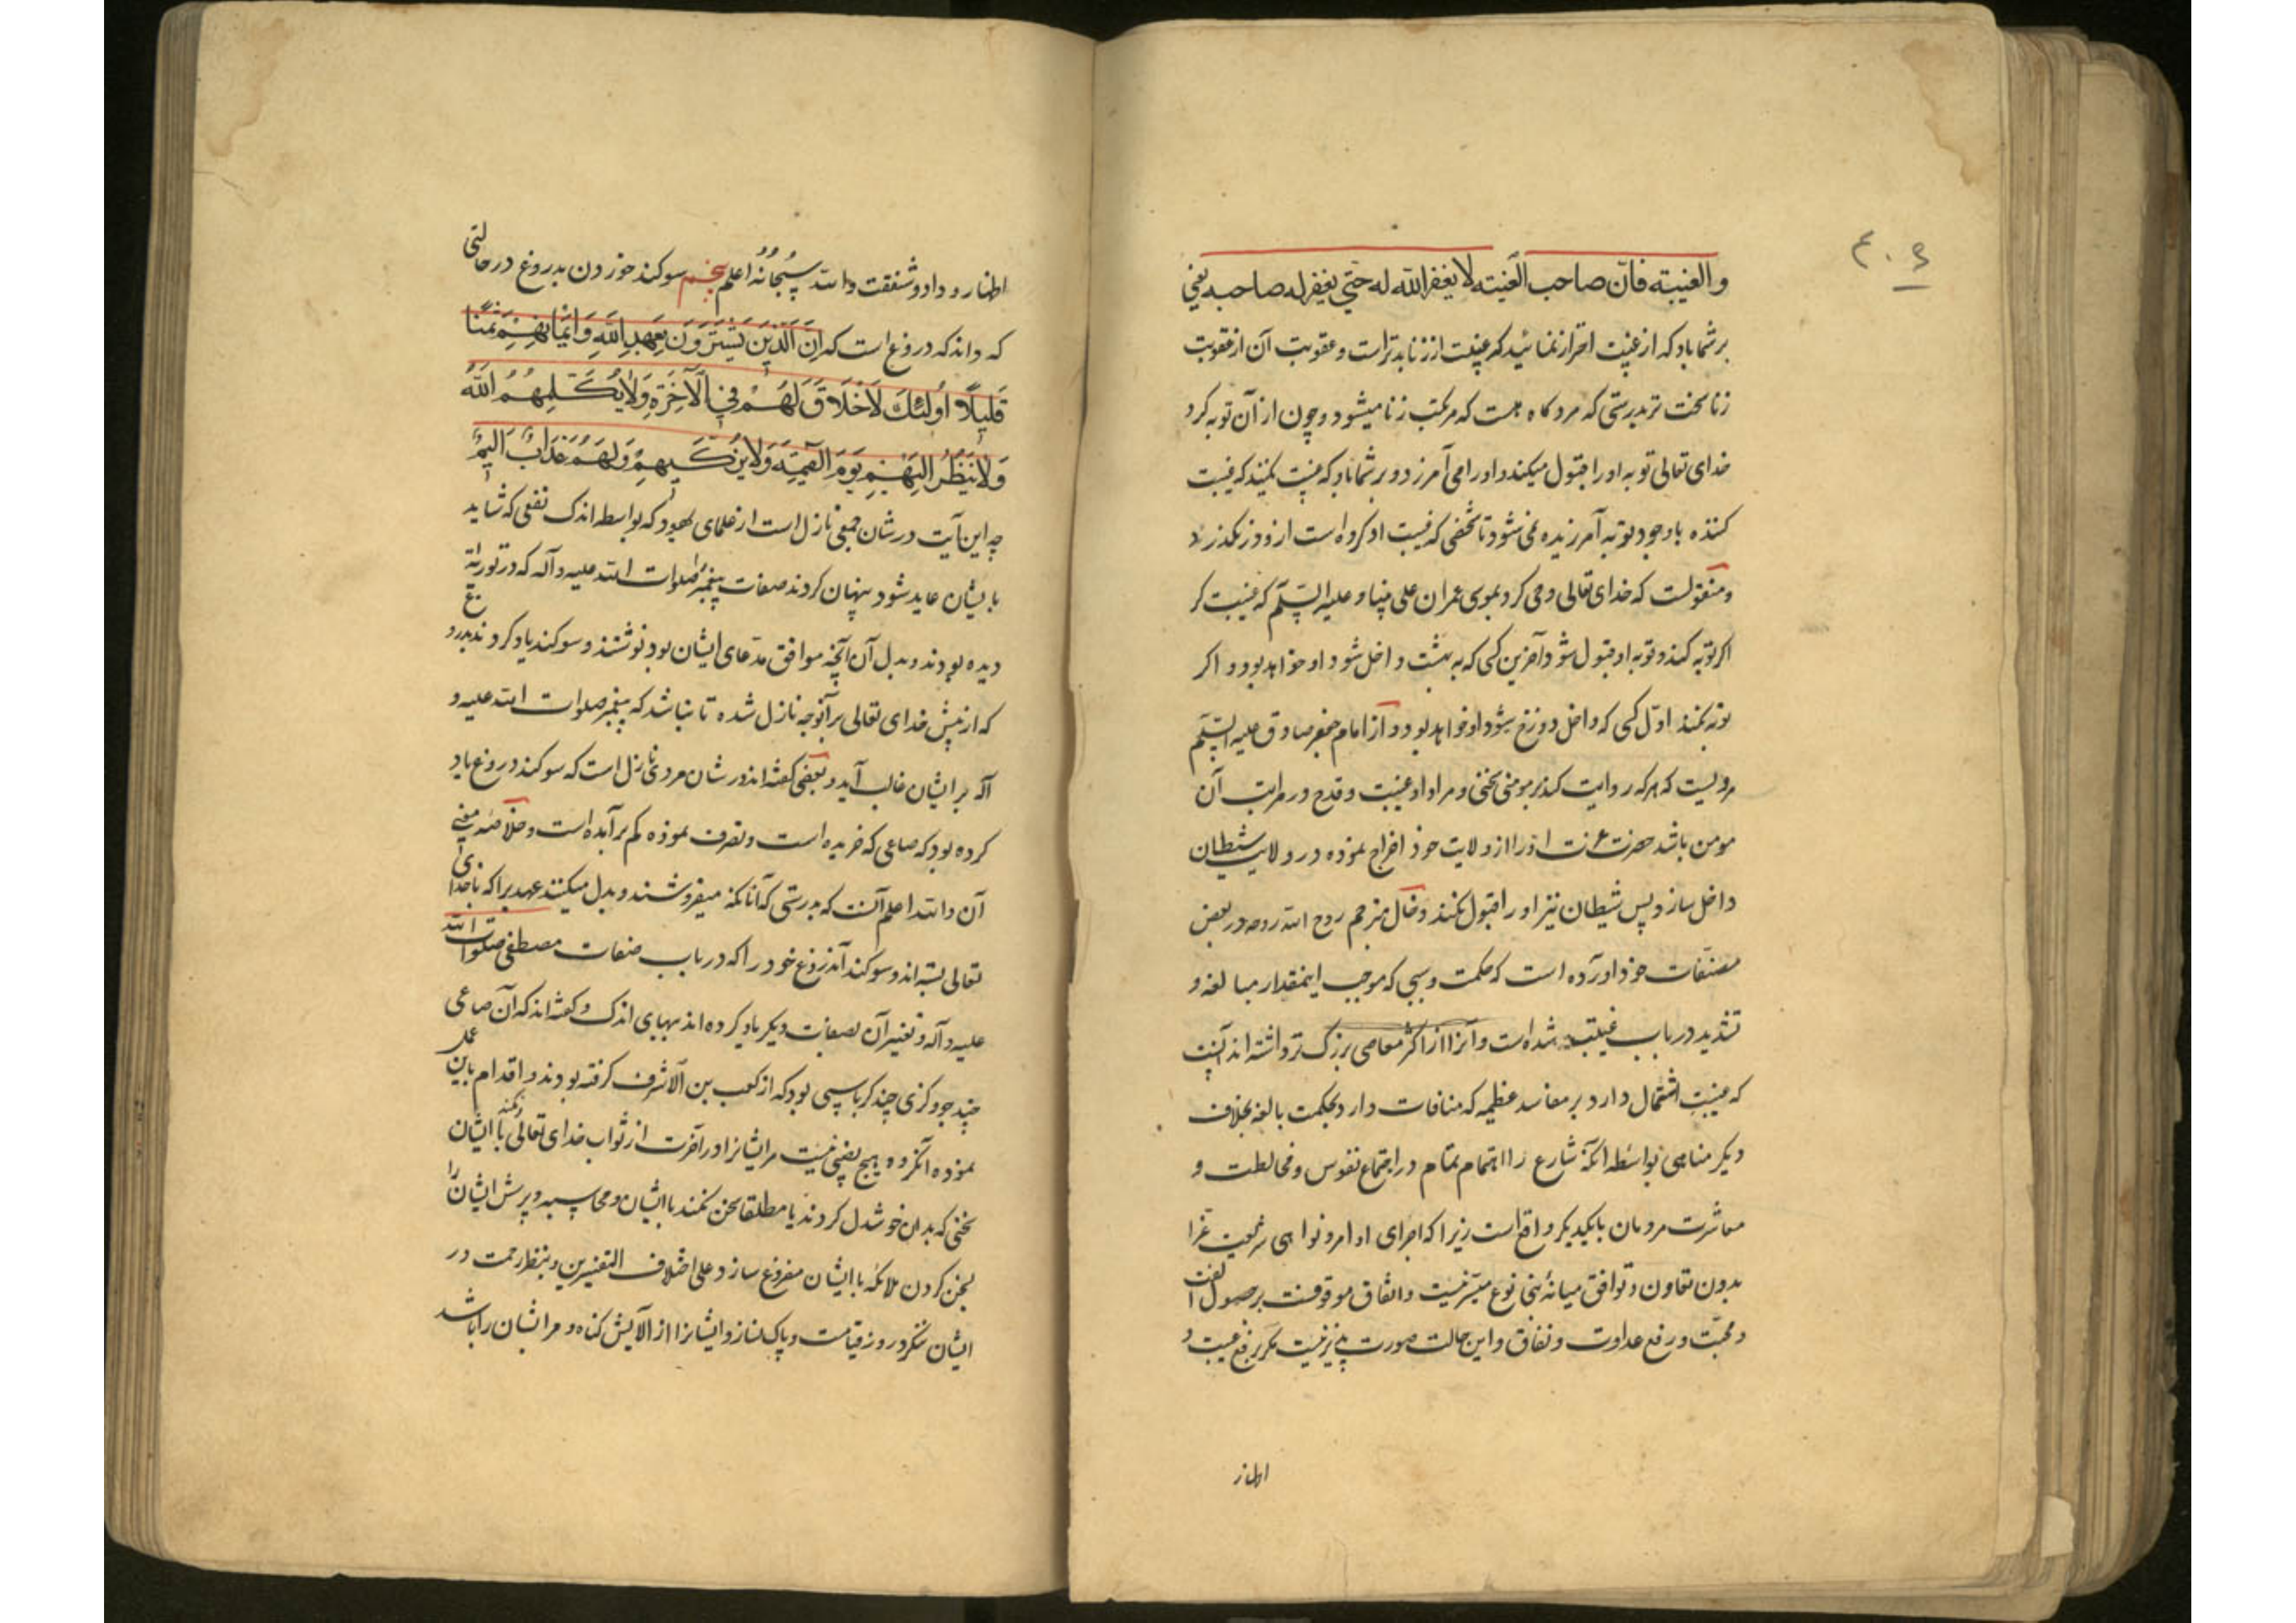 والغیبة فان صاحب الغیبة لا یغفر الله له حتی یغفر له صاحبه یعنی
بر شما باد که از غیبت احتراز نمائید که غیبت از زنا بدتر است و عقوبت آن از عقوبت
زنا سخت تر بدرستی که مرد کاه هست که مرتکب زنا میشود و چون از آن توبه کرد
خدای تعالی توبه او را قبول میکند و او را می آمرزد و بر شما باد که غیبت نکنید که غیبت
کننده با وجود توبه آمرزیده نمی شود تا شخصی که غیبت او کرده است ازو در نکذرد
و منقولست که خدای تعالی وحی کرد بموسی عمران علی نبینا و علیه السلم که غیبت کر
اکر توبه کند و توبه او قبول شود آخرین کسی که به بهشت داخل شود او خواهد بود و اکر
توبه نکند اول کسی که داخل دوزخ شود او خواهد بود و از امام جعفر صادق علیه السلم
مرویست که هر که روایت کند بر مومنی سخنی و مراد او غیبت و قدح در مراتب آن
مومن باشد حضرت عزت او را از ولایت خود اخراج نموده در ولایت شیطان
داخل سازد پس شیطان نیز او را قبول نکند و خال مترجم روح الله روحه در بعض
مصنفات خود آورده است که حکمت و سببی که موجب اینمقدار مبالغه و
تشدید در باب غیبت شده است و آنرا از اکثر معاصی بزرک تر داشته اند آنست
که غیبت اشتمال دارد بر مفاسد عظیمه که منافات دارد بحکمت بالغه بخلاف
دیکر مناهی بواسطه آنکه شارع را اهتمام تمام در اجتماع نفوس و مخالطت و
معاشرت مردمان بایکدیکر واقع است زیرا که اجرای اوامر و نواهی شریعت غرا
بدون تعاون و توافق میانهٔ بنی نوع میسر نیست و اتفاق موقوفست بر حصول الفت
و محبت و رفع عداوت و نفاق و این حالت صورت پذیر نیست مکر برفع غیبت و
اظهار وداد و شفقت والله سبحانه اعلم پنجم سوکند خوردن بدروغ در حالتی
که داند که دروغ است که ان الذین یشترون بعهد الله و ایمانهم ثمنا
قلیلا اولئک لا خلاق لهم فی الآخرة ولا یکلمهم الله
ولا ینظر الیهم یوم القیمة ولا یزکیهم ولهم عذاب الیم
چه این آیت در شان جمعی نازل است از علمای یهود که بواسطه اندک نفعی که شاید
بایشان عاید شود پنهان کردند صفات پیغمبر صلوات الله علیه و آله که در توریة
دیده بودند و بدل آن آنچه موافق مدعای ایشان بود نوشتند و سوکند یاد کردند بدروغ
که از پیش خدای تعالی بر آنوجه نازل شده تا نباشد که پیغمبر صلوات الله علیه و
آله بر ایشان غالب آید و بعضی کفته اند در شان مردی نازل است که سوکند دروغ یاد
کرده بود که صاعی که خریده است و تصرف نموده کم برآمده است و خلاصه معنی
آن والله اعلم آنست که بدرستی که آنانکه میفروشند و بدل میکنند عهدیرا که با خدای
تعالی بسته اند و سوکند آن دروغ خود را که در باب صفات مصطفی صلوات الله
علیه و آله و تغییر آن بصفات دیکر یاد کرده اند ببهای اندک و کفته اند که آن صاعی
چند جو و کزی چند کرباسی بود که از کعب بن الاشرف کرفته بودند و اقدام باین عمل
نموده آنکروه هیچ نصیبی نیست مر ایشانرا در آخرت از ثواب خدای تعالی نکند با ایشان
سخنی که بدان خوشدل کردند یا مطلقا سخن نکند با ایشان و محاسبه و پرسش ایشان را
بسخن کردن ملائکه با ایشان مفروغ سازد علی اختلاف التفسیرین و بنظر رحمت در
ایشان ننکرد روز قیامت و پاک نسازد ایشانرا از آلایش کناه و مر ایشان را باشد